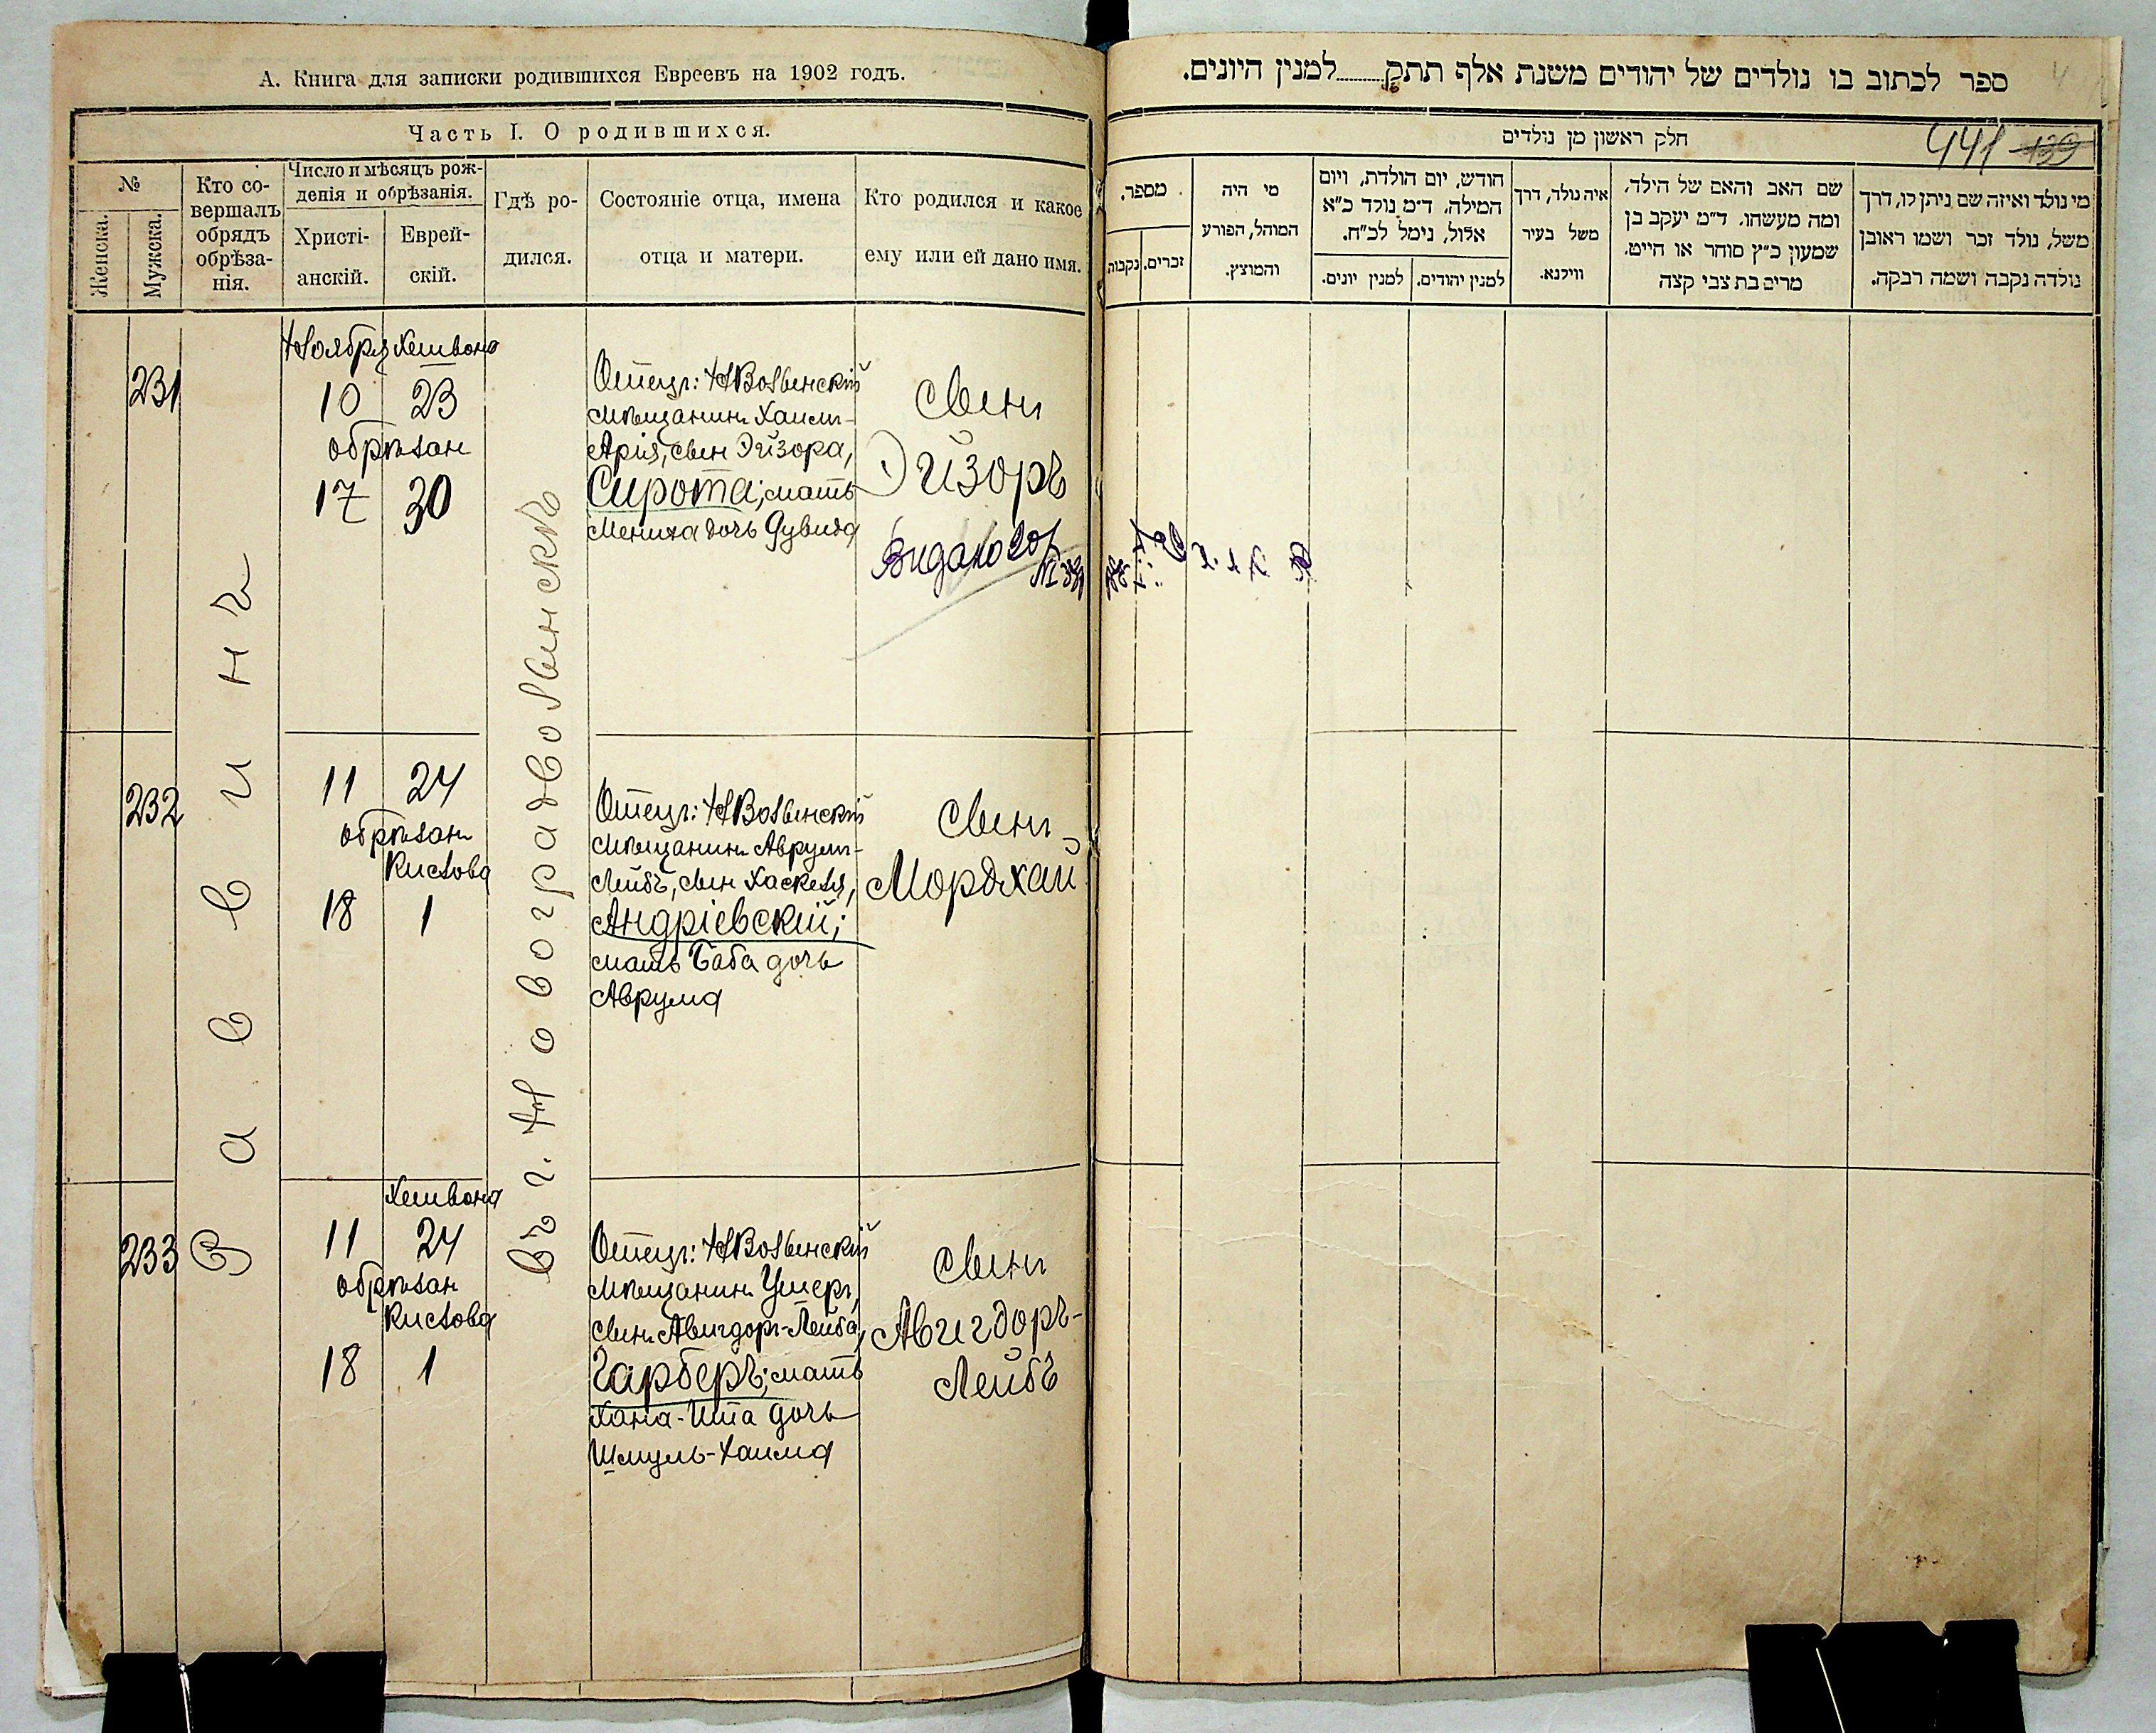 А. Книга для записки родившихся Евреевъ на 1902 годъ.
Часть I. О родившихся.
№
Женска.
Мужска.
Кто со-
вершалъ
обрядъ
обрѣза-
нія.
Число и мѣсяцъ рож-
денія и обрѣзанія.
Христі-
анскій.
Еврей-
скій.
Гдѣ ро-
дился.
Состояніе отца, имена
отца и матери.
Кто родился и какое
ему или ей дано имя.
231
Ноября Хешвона
10 23
обрѣзан
17 30
Отецъ: НВолынскій
мѣщанинъ Хаимъ-
Арія, сын Эйзора,
Сирота; мать
Мениха дочь Дувида
Сынъ
Эйзоръ
232
11 24
обрѣзан
Кислова
18 1
Отецъ: НВолынскій
мѣщанинъ Аврум-
Лейбъ, сын Хаскеля,
Андріевскій;
мать Баба дочь
Аврума
Сынъ
Мордхай
233
Хешвона
11 24
обрѣзан
Кислова
18 1
Отецъ: НВолынскій
мѣщанинъ Ушеръ,
сынъ Авигдоръ-Лейба,
Гарберъ; мать
Хана-Ита дочь
Шмуль-Хаима
Сынъ
Авигдоръ-
Лейбъ
Зайвинъ
въ г. Новоградволынскѣ
ספר לכתוב בו נולדים של יהודים משנת אלף תתק למנין היונים.
חלק ראשון מן נולדים
441 139
מי נולד ואיזה שם ניתן לו, דרך
משל, נולד זכר ושמו ראובן
נולדה נקבה ושמה רבקה.
שם האב והאם של הילד,
ומה מעשהו. ד״מ יעקב בן
שמעון כ״ץ סוחר או חייט.
מרים בת צבי קצה
איה נולד, דרך
משל בעיר
ווילנא.
חודש, יום הולדת, ויום
המילה. ד״מ נולד כ״א
אלול, נימל לכ״ח.
למנין יהודים.
למנין יונים.
מי היה
המוהל, הפורע
והמוצץ.
מספר.
זכרים.
נקבות